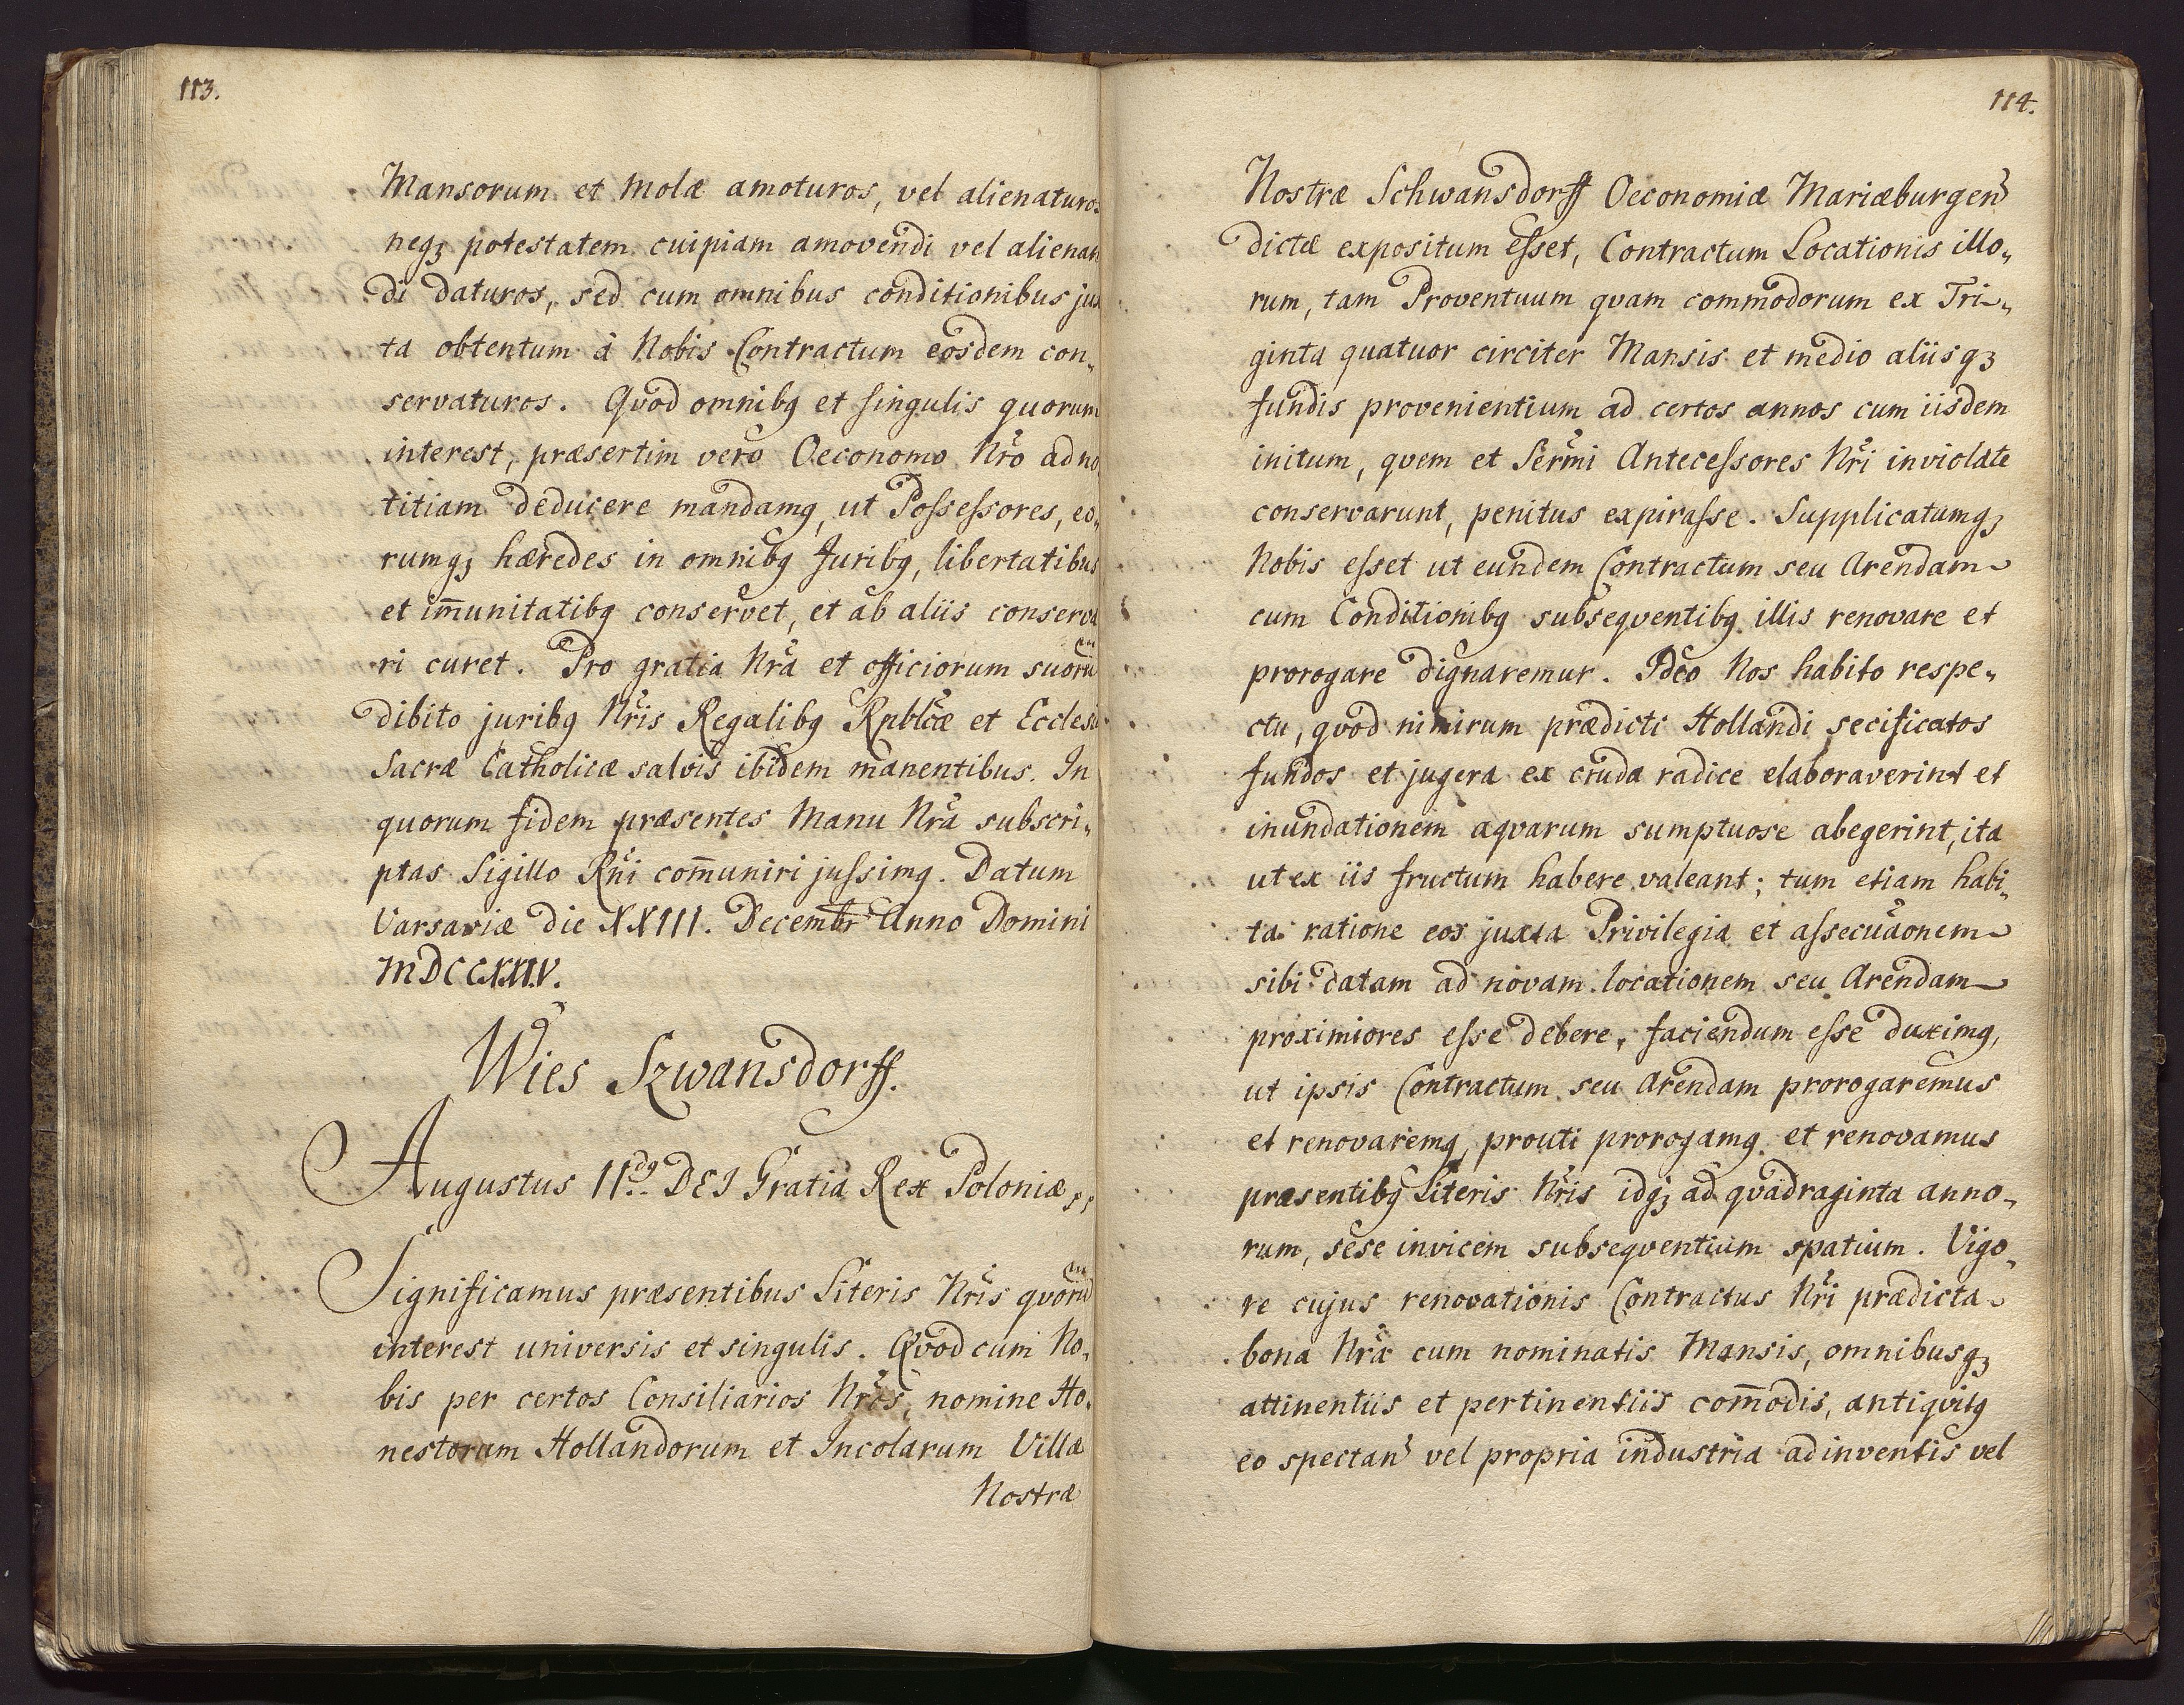 113.
Mansorum et Molæ amoturos, vel alienaturos
neqz potestatem cuipiam amovendi vel alienan
di daturos, sed cum omnibus conditionibus jux
ta obtentum à Nobis Contractum eosdem con„
servaturos. Qvod omnibq et singulis quorum
interest, præsertim vero Oeconomo Nrõ ad no
titiam deducere mandamq, ut Possessores, eo„
rumqz hæredes in omnibq Juribq, libertatibus
et im̃unitatibq conservet, et ab aliis conserva
ri curet. Pro gratia Nrã et officiorum suorũ
dibito juribq Nrĩs Regalibq Rpblcæ et Ecclesiæ
Sacræ Catholicæ salvis ibidem manentibus. In
quorum fidem præsentes Manu Nrã subscri„
ptas Sigillo Rñi com̃uniri jussimq. Datum
Varsaviæ die XXIII. Decembr Anno Domini
MDCCXXIV.
Wies Szwansdorff.
Augustus IIdq DEI Gratia Rex Poloniæ,,
Significamus præsentibus Literis Nrĩs qvorũ
interest universis et singulis. Qvod cum No„
bis per certos Consiliarios Nrõs, nomine Ho„
nestorum Hollandorum et Incolarum Villæ
Nostræ
114.
Nostræ Schwansdorff Oeconomiæ Mariæburgen
dictæ expositum esset, Contractum Locationis illo„
rum, tam Proventuum qvam commodorum ex Tri„
ginta quatuor circiter Mansis et medio aliisqz
fundis provenientium ad certos annos cum iisdem
initum, qvem et Serm̃i Antecessores Nrĩ inviolate
conservarunt, penitus expirasse. Supplicatumqz
Nobis esset ut eundem Contractum seu Arendam
cum Conditionibq subseqventibq illis renovare et
prorogare dignaremur. Ideo Nos habito respe„
ctu, qvod nimirum prædicti Hollandi secificatos
fundos et jugera ex cruda radice elaboraverint et
inundationem aqvarum sumptuose abegerint, ita
ut ex iis fructum habere valeant; tum etiam habi„
ta ratione eos juxta Privilegia et assecuãonem
sibi datam ad novam locationem seu Arendam
proximiores esse debere, faciendum esse duximq,
ut ipsis Contractum seu Arendam prorogaremus
et renovaremq, prouti prorogamq et renovamus
præsentibq Literis Nrĩs idqz ad qvadraginta anno„
rum, sese invicem subseqventium spatium. Vigo„
re cujus renovationis Contractus Nrĩ prædicta
bona Nrã cum nominatis Mansis, omnibusqz
attinentiis et pertinentiis com̃odis, antiqvitq
eo spectan vel propria industria adinventis vel